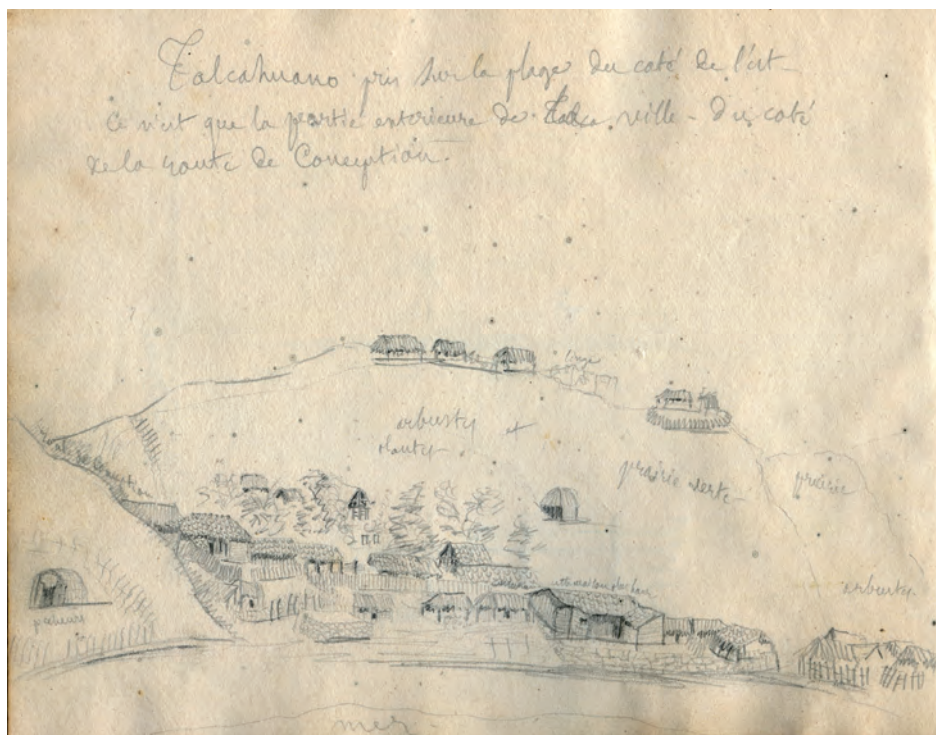 Talcahuano pris sur la plage du coté de l'est
Ce n'est que la partie exterieure de Talca ville - du coté
de la route de Conception.
arbustes et
plantes
prairie verte
prairie
arbustes
pecheurs
mer